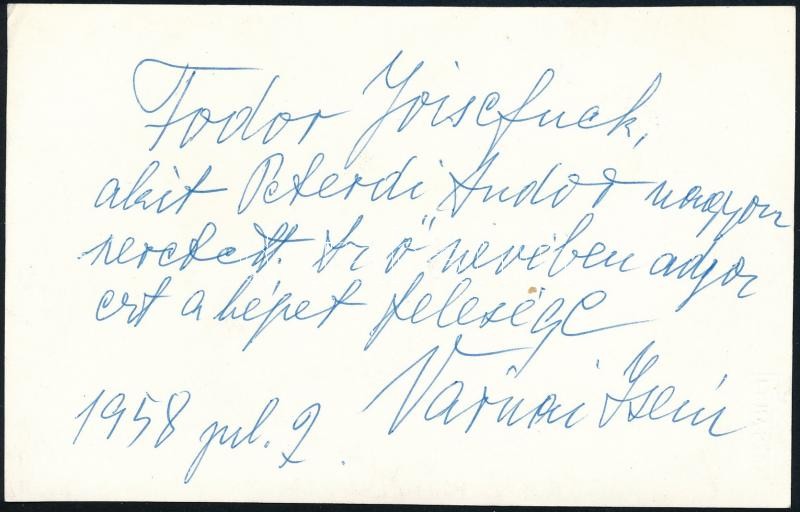 Fodor Józsefnek,
akit Peterdi Andor nagyon
szeretett. Az ő nevében adja
ezt a képet felesége
Várnai Zseni
1958 jul. 9.